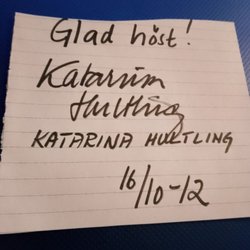 Glad höst!
Katarina
Hultling
KATARINA HULTLING
16/10-12